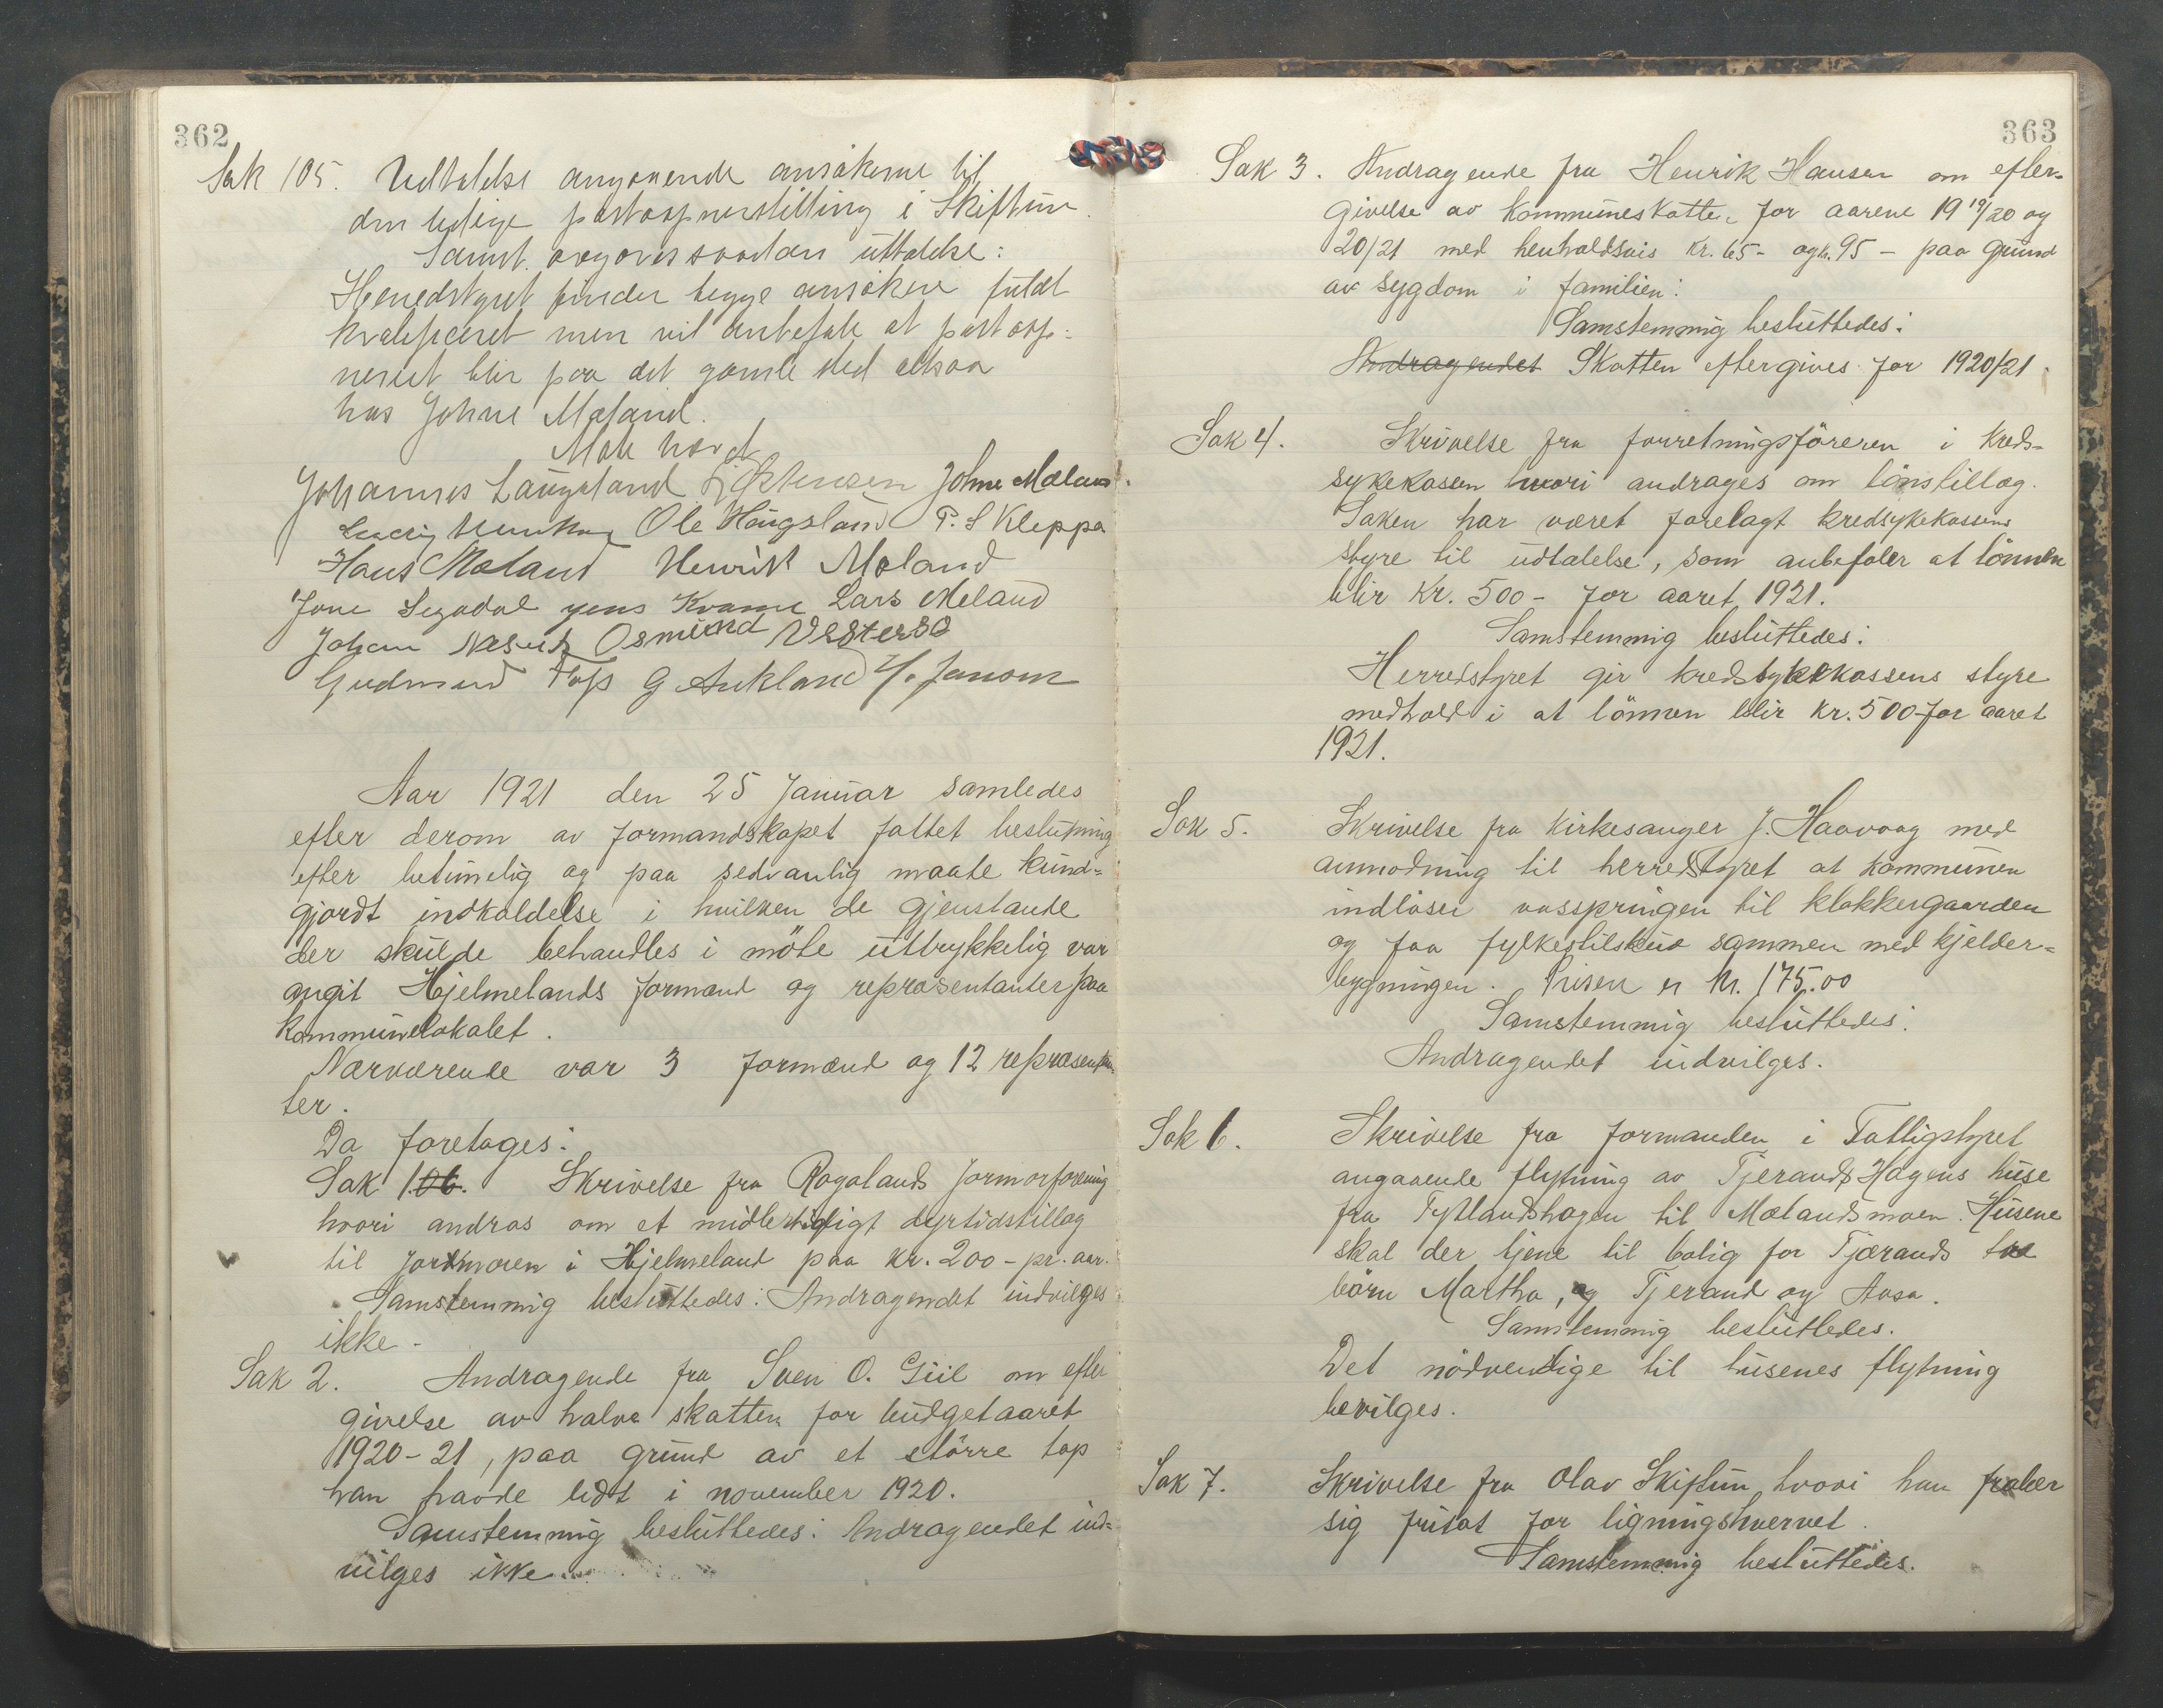 362
Sak 105. Uttalelse angaaende ansøkerne til
den ledige postaapnerstilling i Skiftun.
Samst. avgaves saadan uttalelse:
Herredstyret finder begge ansøkere fuldt
kvalificeret men vil anbefale at postaap-
neriet blir paa det gamle sted altsaa
hos Johne Mæland.
Møte hævet
Johannes Laugaland Johne Mæland.
Ole Haugsland P. S Kleppa
Hans Mæland Henrik Mæland
Jone Segadal Jens Kvame Lars Meland
Johan Osmund Vestersø
Gudmund Foss G Aukland
Aar 1921 den 25 Januar samledes
efter derom av formandskapet fattet beslutning
efter betimelig og paa sedvanlig maate kund-
gjordt indkaldelse i hvilken de gjenstande
der skulde behandles i møte uttrykkelig var
angit Hjelmelands formænd og repræsentanter paa
kommunelokalet.
Nærværende var 3 formænd og 12 repræsentan-
ter.
Da foretoges:
Sak 106. Skrivelse fra Rogalands Jormorforening
hvori andras om et midlertidigt dyrtidstillæg
til jordmoren i Hjelmeland paa kr. 200 - pr. aar.
Samstemmig besluttedes: Andragendet indvilges
ikke -
Sak 2. Andragende fra Sven O. Giil om efter
givelse av halve skatten for budgetaaret
1920-21, paa grund av et större tap
han havde lidt i november 1920.
Samstemmig besluttedes: Andragendet ind-
vilges ikke
363
Sak 3. Andragende fra Henrik Hansen om efter-
givelse av kommuneskatten for aarene 1919/20 og
20/21 med henholdsvis kr. 65 - og kr. 95 - paa grund
av sygdom i familien:
Samstemmig besluttedes:
Andragendet Skatten eftergives for 1920/21.
Sak 4. Skrivelse fra forretningsföreren i Kreds-
sykekassen hvori andrages om lönstillæg.
Saken har været forelagt kredsykekassens
styre til udtalelse, som anbefaler at lönnen
blir Kr. 500 - for aaret 1921.
Samstemmig besluttedes:
Herredstyret gir kredssykekassens styre
medhold i at lönnen blir kr. 500 - for aaret
1921.
Sak 5. Skrivelse fra Kirkesanger J. Haavaag med
anmodning til herredstyret at kommunen
indlöser vasspringen til klokkergaarden
og faa fylkestilskud sammen med kjelder-
bygningen. Prisen er kr. 175.00
Samstemmig besluttedes:
Andragendet indvilges.
Sak 6. Skrivelse fra formanden i Fattigstyret
angaaende flytning av Tjerands Hagens huse
fra Tytlandshagen til Mælandsmoen. Husene
skal der tjene til bolig for Tjærands tre
börn Martha, og Tjerand og Aasa.
Samstemmig besluttedes.
Det nödvendige til husenes flytning
bevilges.
Sak 7. Skrivelse fra Olav Skiftun hvori han frabær
sig fritat for ligningshvervet.
Samstemmig besluttedes.